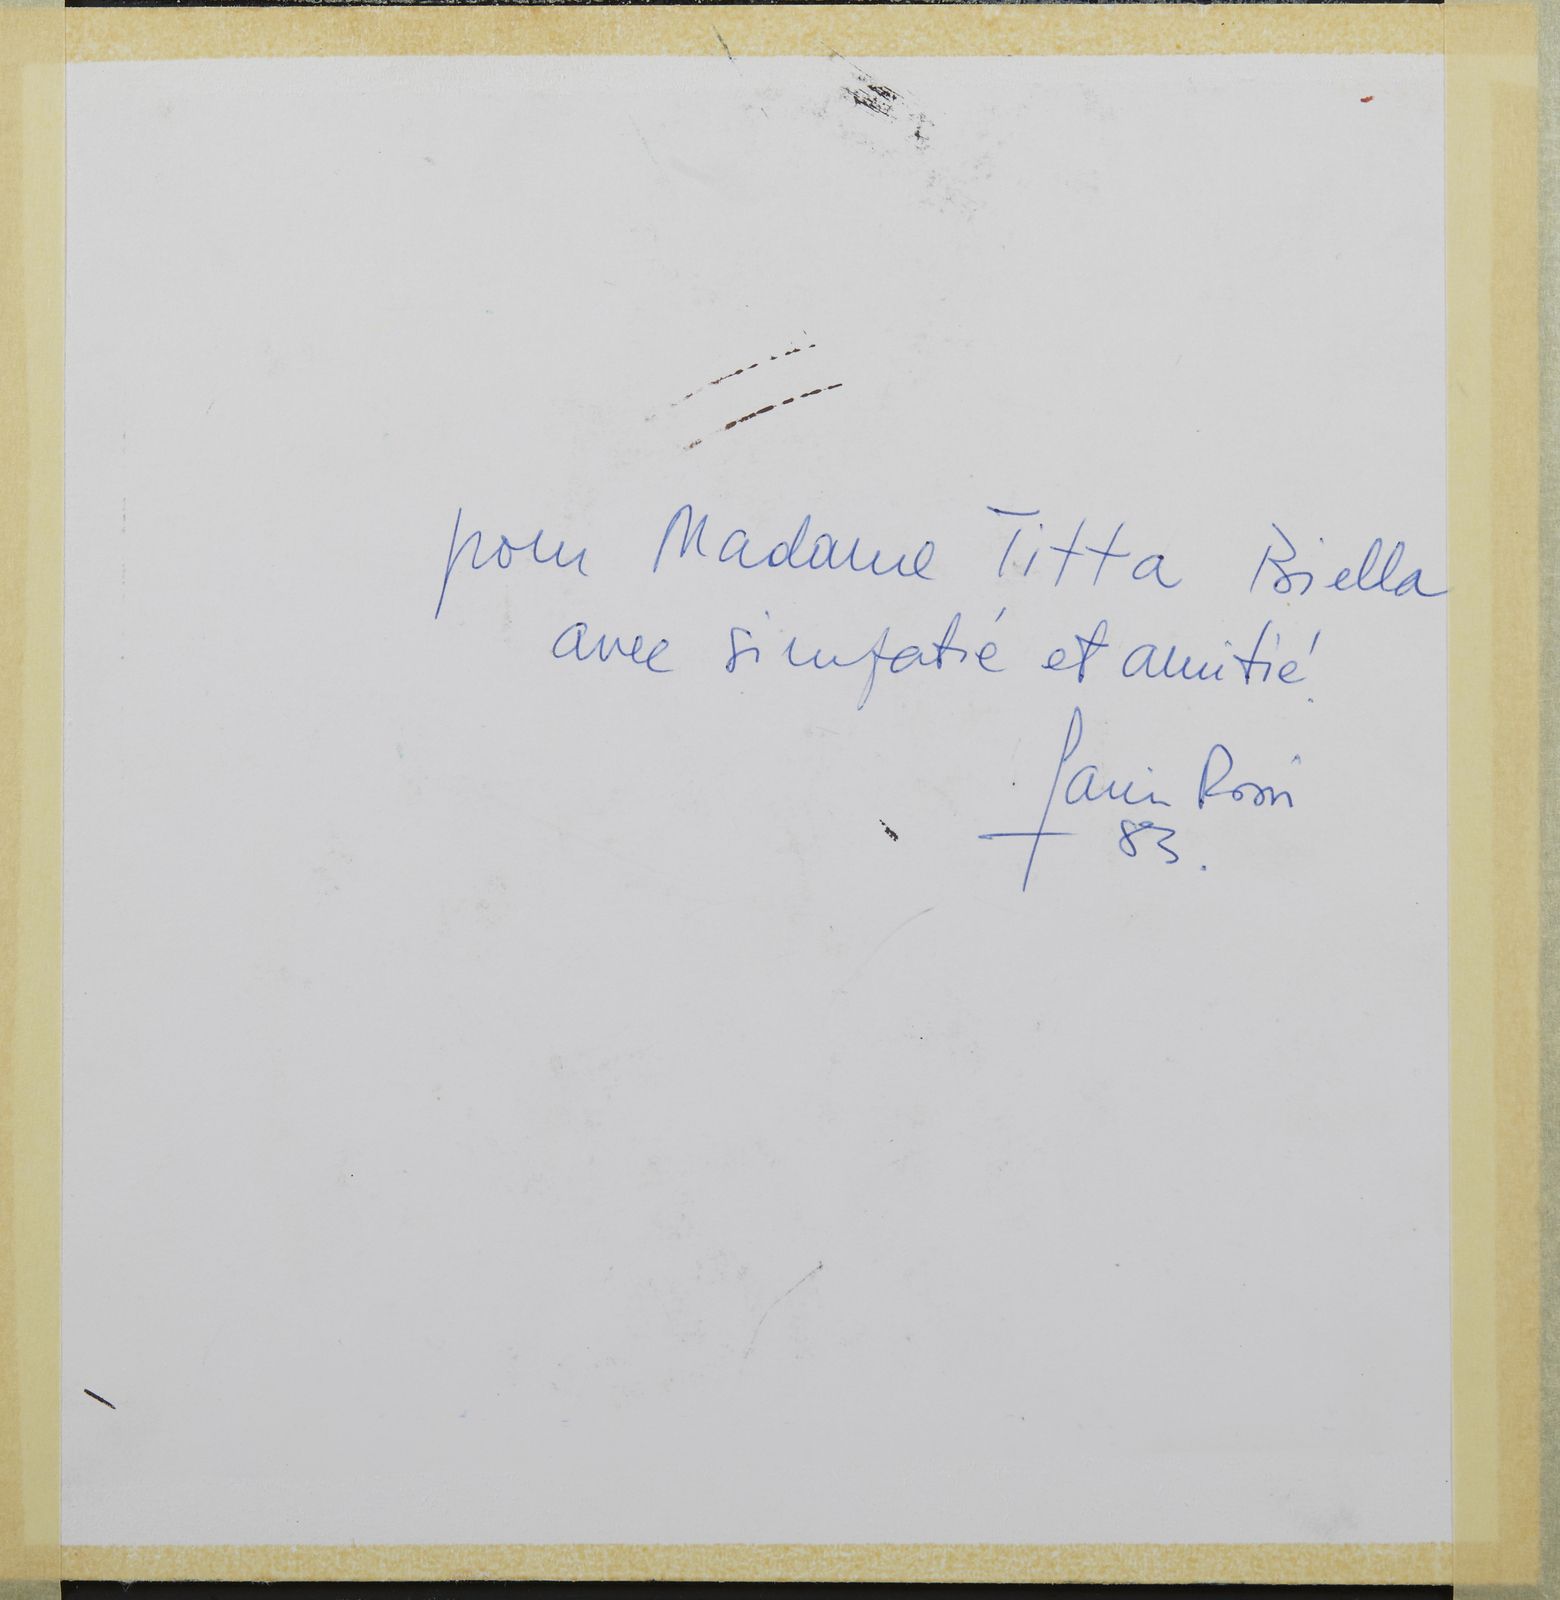 pour Madame Titta Biella
avec simpatié et amitié.
Rossi
83.